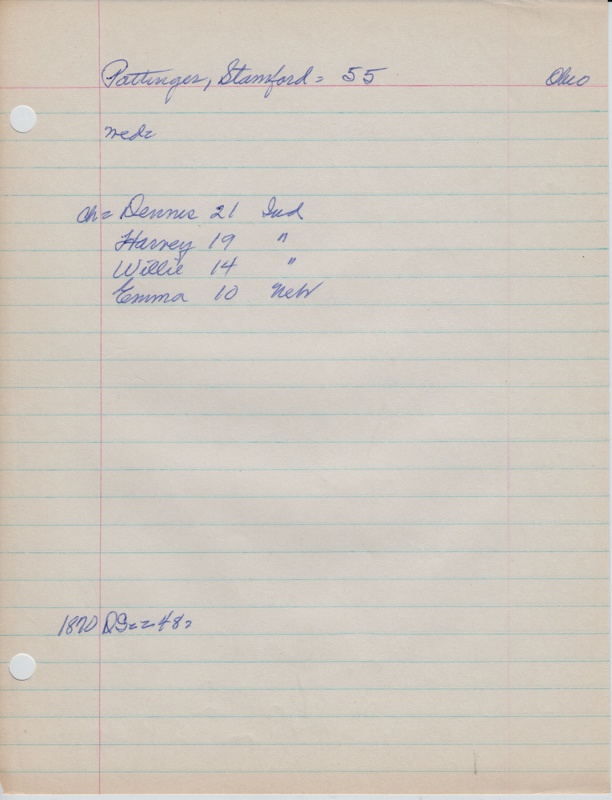 Pattinger, Stamford = 55 Ohio
wed=
ch = Dennis 21 Ind
Harvey 19 "
Willie 14 "
Emma 10 Nebr
1870 DG== 48=